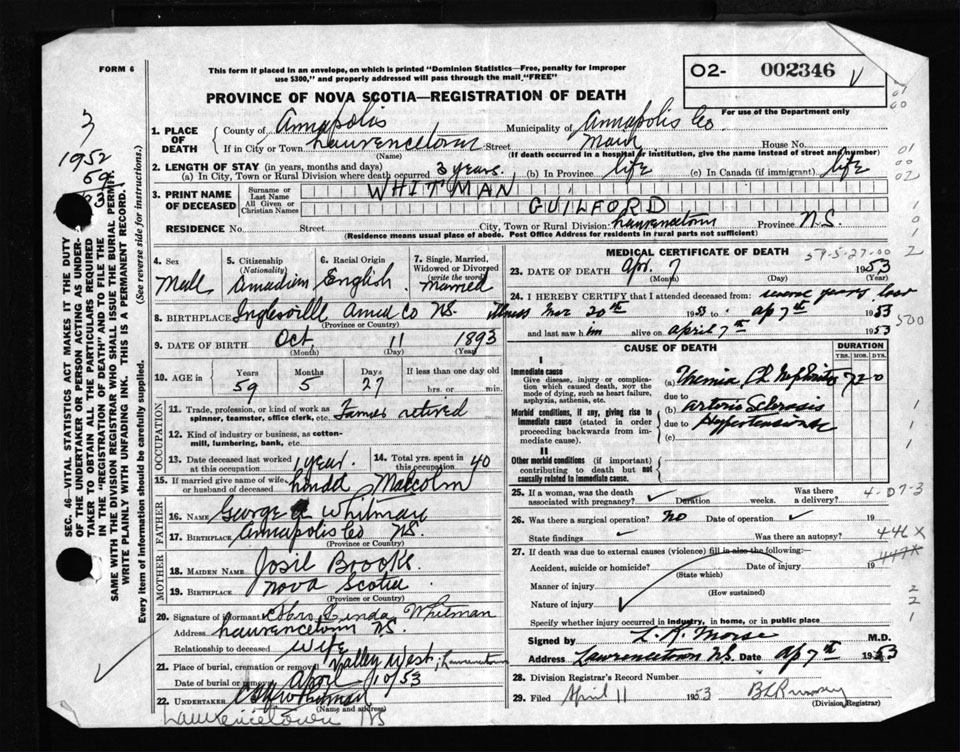 FORM 6
This form if placed in an envelope, on which is printed "Dominion Statistics—Free, penalty for improper
use $300," and properly addressed will pass through the mail "FREE"
O2- 002346
For use of the Department only
PROVINCE OF NOVA SCOTIA—REGISTRATION OF DEATH
3
1952
SEC. 46—VITAL STATISTICS ACT MAKES IT THE DUTY
OF THE UNDERTAKER OR PERSON ACTING AS UNDER-
TAKER TO OBTAIN ALL THE PARTICULARS REQUIRED
IN THE "REGISTRATION OF DEATH" AND TO FILE THE
SAME WITH THE DIVISION REGISTRAR WHO SHALL ISSUE THE BURIAL PERMIT.
WRITE PLAINLY WITH UNFADING INK. THIS IS A PERMANENT RECORD.
Every item of information should be carefully supplied. (See reverse side for instructions.)
1. PLACE OF DEATH County of Annapolis Municipality of Annapolis Co.
If in City or Town Lawrencetown Street Main House No.
(Name) (If death occurred in a hospital or institution, give the name instead of street and number)
2. LENGTH OF STAY (in years, months and days)
(a) In City, Town or Rural Division where death occurred 3 years. (b) In Province life (c) In Canada (if immigrant) life
3. PRINT NAME OF DECEASED Surname or Last Name WHITMAN
All Given or Christian Names GUILFORD
RESIDENCE No. Street City, Town or Rural Division Lawrencetown Province N.S.
(Residence means usual place of abode. Post Office Address for residents in rural parts not sufficient)
4. Sex Male
5. Citizenship (Nationality) Canadian
6. Racial Origin English
7. Single, Married, Widowed or Divorced (write the word) Married
8. BIRTHPLACE Inglesville Annap Co NS.
(Province or Country)
9. DATE OF BIRTH Oct. 11 1893
(Month) (Day) (Year)
10. AGE in Years Months Days If less than one day old
59 5 27 hrs. or min.
OCCUPATION
11. Trade, profession, or kind of work as spinner, teamster, office clerk, etc. Farmer retired
12. Kind of industry or business, as cotton-mill, lumbering, bank, etc.
13. Date deceased last worked at this occupation 1 year. 14. Total yrs. spent in this occupation 40
15. If married give name of wife or husband of deceased Linda Malcolm
FATHER
16. NAME George Whitman
17. BIRTHPLACE Annapolis Co NS.
(Province or Country)
MOTHER
18. MAIDEN NAME Josie Brooks.
19. BIRTHPLACE Nova Scotia
(Province or Country)
20. Signature of informant Mrs Linda Whitman
Address Lawrencetown NS.
Relationship to deceased wife
21. Place of burial, cremation or removal Valley West, Lawrencetown
Date of burial or removal April 10/53
22. UNDERTAKER
(Name and address)
Lawrencetown NS
MEDICAL CERTIFICATE OF DEATH
59-5-27-00
23. DATE OF DEATH Apr. 7 1953
(Month) (Day) (Year)
24. I HEREBY CERTIFY that I attended deceased from: several years last
illness Mar 20th 1953 to Ap 7th 1953
and last saw him alive on april 7th 1953
CAUSE OF DEATH
DURATION
YRS. MOS. DYS.
I
Immediate cause
Give disease, injury or complication which caused death, not the mode of dying, such as heart failure, asphyxia, asthenia, etc.
(a) Uremia Ch Nephritis
due to
Morbid conditions, if any, giving rise to immediate cause (stated in order proceeding backwards from immediate cause).
(b) Arterio Sclerosis
due to Hypertension
(c)
II
Other morbid conditions (if important) contributing to death but not causally related to immediate cause.
25. If a woman, was the death associated with pregnancy? Duration weeks. Was there a delivery?
26. Was there a surgical operation? No Date of operation 19
State findings Was there an autopsy?
446 X
27. If death was due to external causes (violence) fill in also the following:—
Accident, suicide or homicide? Date of injury 19
(State which)
Manner of injury
(How sustained)
Nature of injury
Specify whether injury occurred in industry, in home, or in public place
Signed by L. R. Morse M.D.
Address Lawrencetown N.S. Date Ap 7th 1953
28. Division Registrar's Record Number
29. Filed April 11 1953
(Division Registrar)